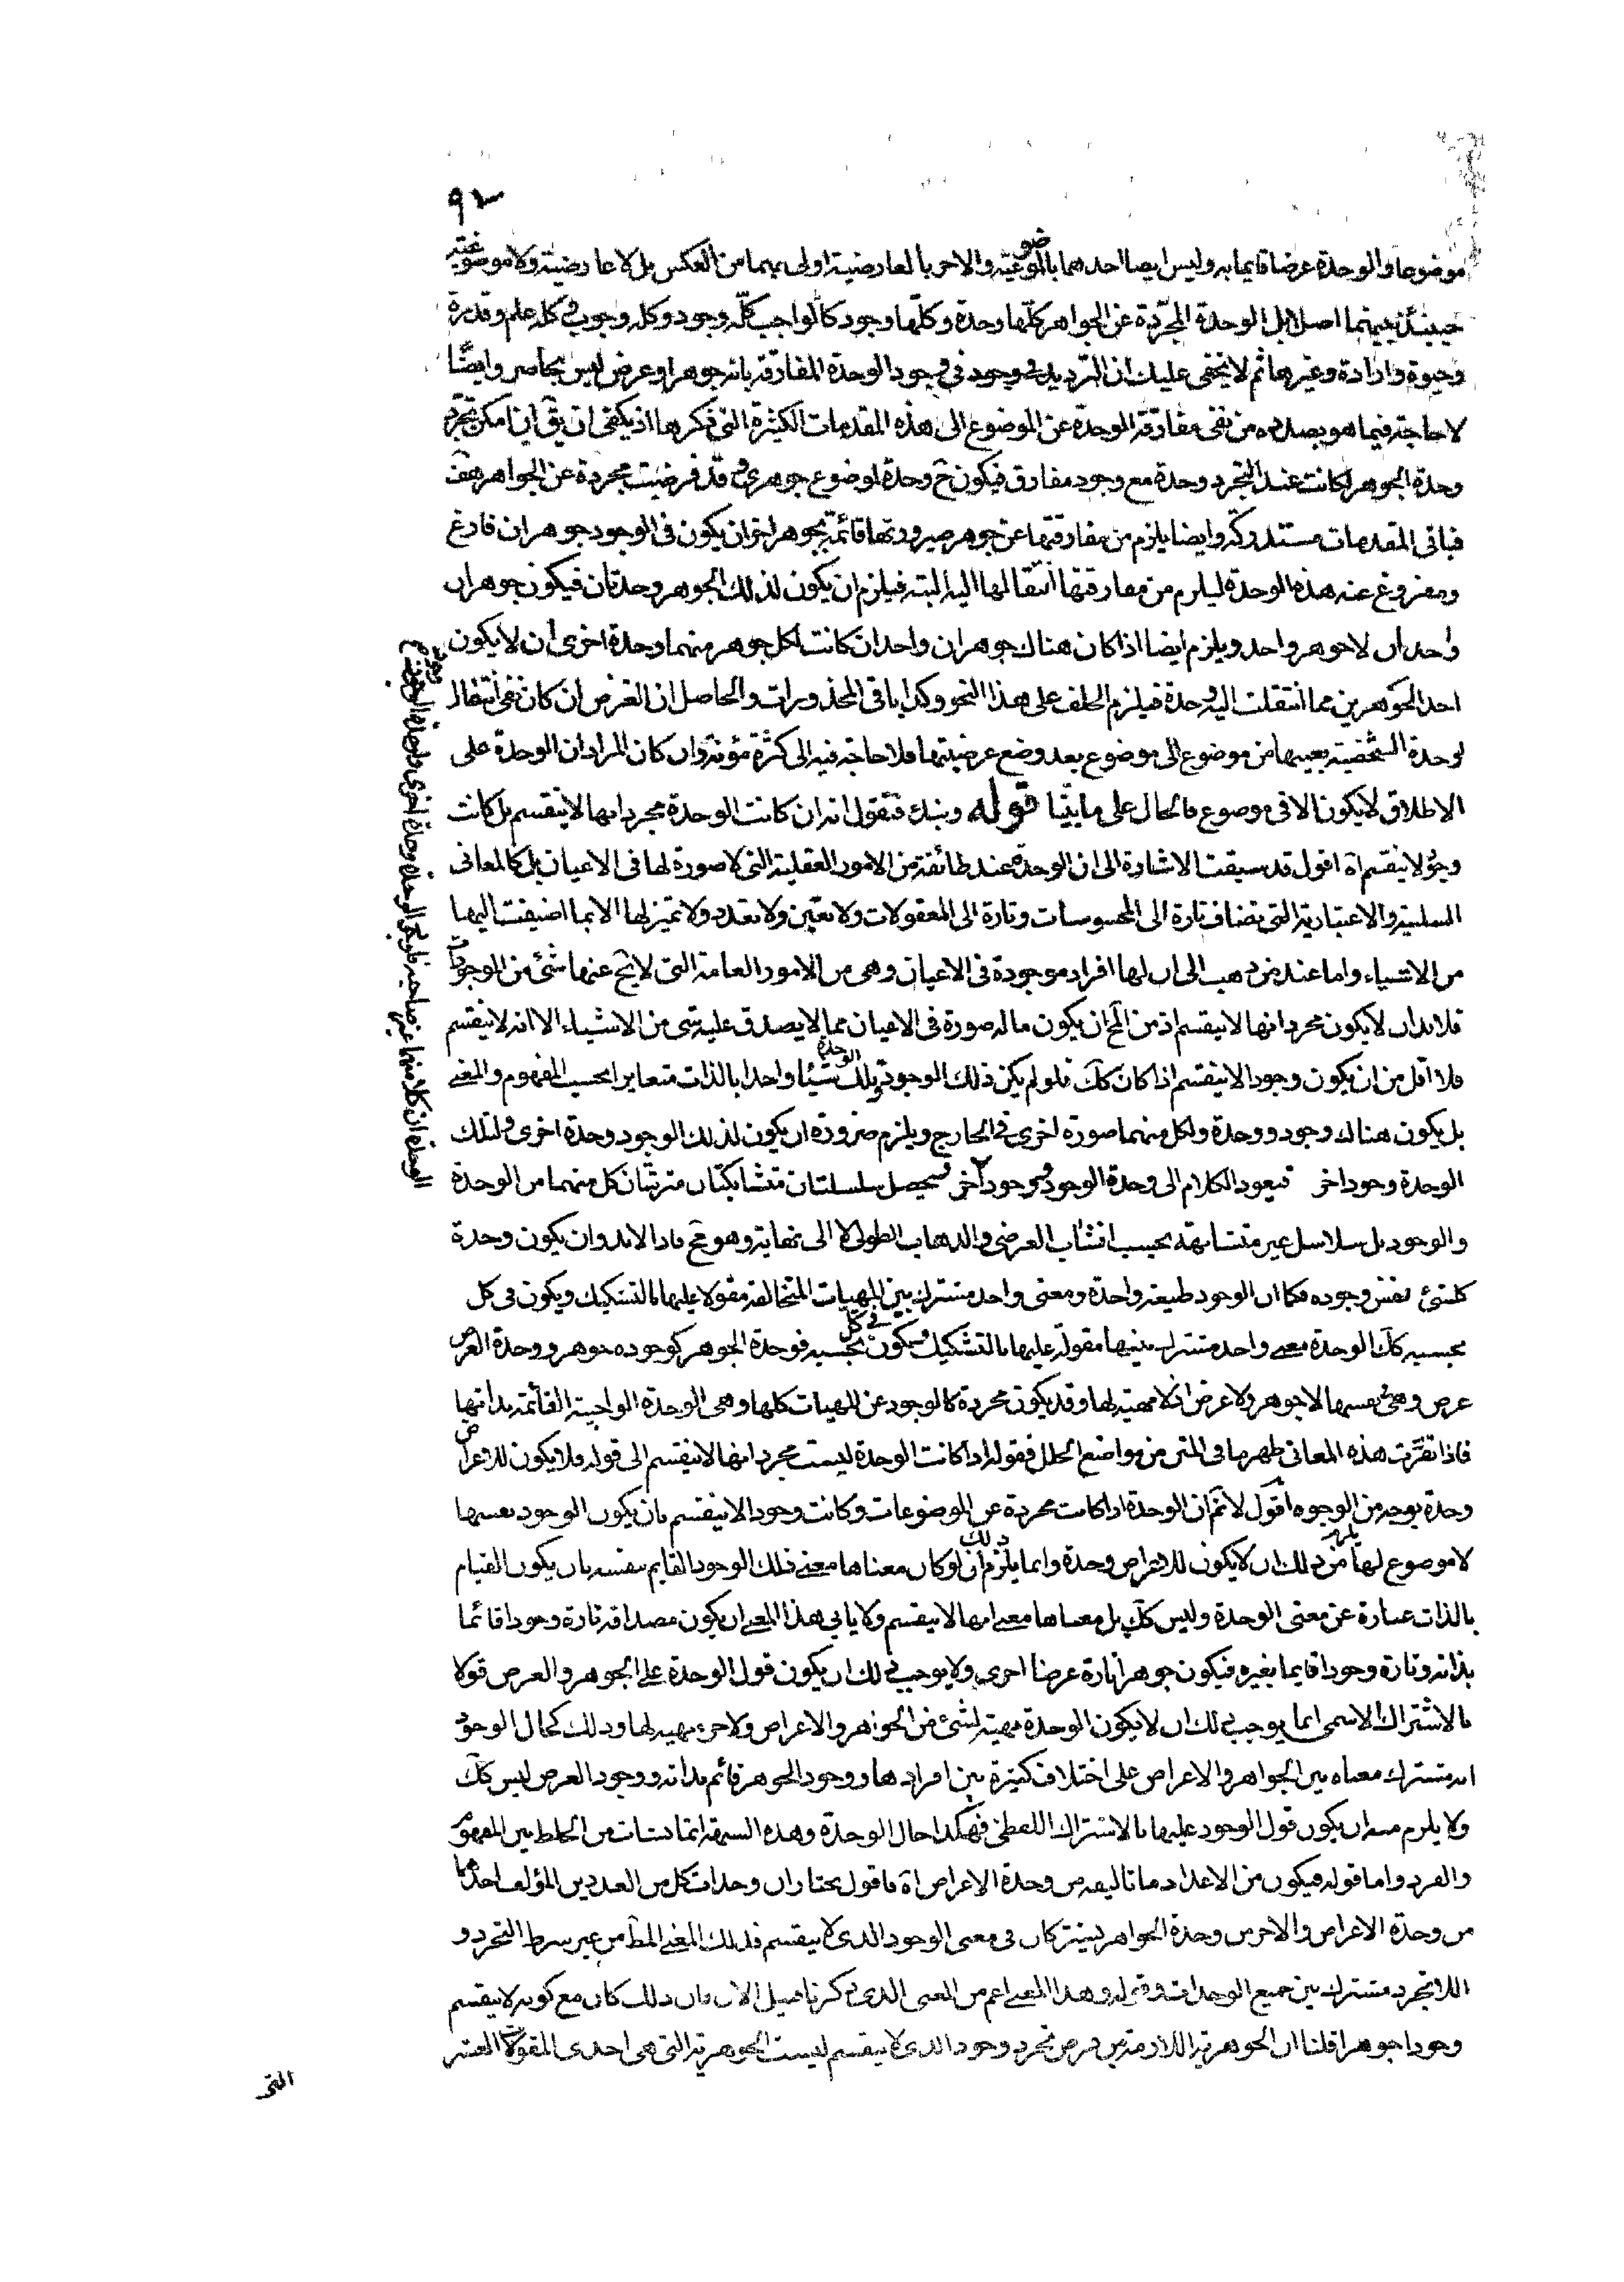 ٩٢
موضوعا والوحدة عرضا قايما به وليس ايضا احدهما بالموضوعية والاخر بالعارضية اولى بهما من العكس بل لا عارضية ولا موضوعية
حينئذ بينهما اصلا بل الوحدة المجردة عن الجواهر كلها وحدة وكلها وجود كالواجب كله وجود وكله وجوب وكله علم وقدرة
وحيوة وارادة وغيرها ثم لا يخفى عليك ان الترديد في وجود الوحدة المفارقة بانه جوهر او عرض ليس بحاصر وايضا
لا حاجة فيما هو بصدده من نفى مفارقة الوحدة عن الموضوع الى هذه المقدمات الكثيرة التى ذكرها اذ يكفى ان يق ان امكن تجرد
وحدة الجوهر لكانت عند التجرد وحدة مع وجود مفارق فيكون ح وحدة لموضوع جوهرى وقد فرضت مجردة عن الجواهر هف
فباقى المقدمات مستدركة وايضا يلزم من مفارقتها عن جوهر صيرورتها قائمة بجوهر اخر ان يكون فى الوجود جوهران فارغ
ومفروغ عنه هذه الوحدة ليلزم من مفارقتها انتقالها اليه البته فيلزم ان يكون لذلك الجوهر وحدتان فيكون جوهران
واحدان لا جوهر واحد ويلزم ايضا اذا كان هناك جوهران واحدان كانت لكل جوهر منهما وحدة اخرى ان لا يكون
احد الجوهرين مما انتقلت اليه وحدة فيلزم الخلف على هذا النحو وكذا باقى المحذورات والحاصل ان الغرض ان كان نفى انتقال
لوحدة الشخصية بعينها من موضوع الى موضوع بعد وضع عرضيتها فلا حاجة فيه الى كثرة مؤنة وان كان المراد ان الوحدة على
الاطلاق لا يكون الا فى موضوع فالحال على ما بينا قوله ونبتدء فنقول انه ان كانت الوحدة مجرد انها لا ينقسم بل كانت
وجود لا ينقسم اه اقول قد سبقت الاشارة الى ان الوحدة عند طائفة من الامور العقلية التى لا صورة لها فى الاعيان بل كالمعانى
السلبية والاعتبارية التى تضاف تارة الى المحسوسات وتارة الى المعقولات ولا تعين ولا تعدد ولا تميز لها الا بما اضيفت اليها
من الاشياء واما عند من ذهب الى ان لها افراد موجودة فى الاعيان وهى من الامور العامة التى لا يخ عنها شئ من الوجودات
فلا بد ان لا يكون مجرد انها لا ينقسم اذ من المح ان يكون ما له صورة فى الاعيان مما لا يصدق عليه شى من الاشياء الا انه لا ينقسم
فلا اقل من ان يكون وجود الا ينقسم اذا كان كك فلو لم يكن ذلك الوجود وتلك الوحدة شيئا واحدا بالذات متغايرا بحسب المفهوم والمعنى
بل يكون هناك وجود ووحدة ولكل منهما صورة اخرى فى الخارج ويلزم ضرورة ان يكون لذلك الوجود وحدة اخرى ولتلك
الوحدة وجود اخر فيعود الكلام الى وحدة الوجود ووجود اخر فيحصل سلسلتان متشابكتان مترتبتان كل منهما من الوحدة
والوجود بل سلاسل غير متشابهة بحسب انشاب العرضى والذهاب الطولى لا الى نهاية وهو مح فاذا لا بد وان يكون وحدة
كلشئ نفس وجوده فكما ان الوجود طبيعة واحدة ومعنى واحد مشترك بين المهيات المتخالفة مقولا عليها بالتشكيك ويكون فى كل
بحسبه كك الوحدة معنى واحد مشترك بينها مقولة عليها بالتشكيك ويكون فى كل بحسبه فوحدة الجوهر كوجوده جوهر ووحدة العرض
عرض وهى نفسها لا جوهر ولا عرض اذ لا مهية لها وقد يكون مجردة كالوجود عن المهيات كلها وهى الوحدة الواجبة القائمة بذاتها
فاذا تقررت هذه المعانى ظهر ما فى المتن من مواضع الخلل فقوله اذا كانت الوحدة ليست مجرد انها لا ينقسم الى قوله فلا يكون للاعراض
وحدة بوجه من الوجوه اقول لا نم ان الوحدة اذا كانت مجردة عن الموضوعات وكانت وجود الا ينقسم بان يكون الوجود نفسها
لا موضوع لها يلزم من ذلك ان لا يكون للاعراض وحدة وانما يلزم ذلك ان لو كان معناها معنى ذلك الوجود القايم بنفسه بان يكون القيام
بالذات عبارة عن معنى الوحدة وليس كك بل معناها معنى انها لا ينقسم ولا يابى هذا المعنى ان يكون مصداقه تارة وجودا قائما
بذاته وتارة وجودا قايما بغيره فيكون جوهرا تارة عرضا اخرى ولا يوجب ذلك ان يكون قول الوحدة على الجوهر والعرض قولا
بالاشتراك الاسمى انما يوجب ذلك ان لا يكون الوحدة مهية لشئ من الجواهر والاعراض ولا جزء مهية لها وذلك كحال الوجود
انه مشترك معناه بين الجواهر والاعراض على اختلاف كثيرة بين افرادها ووجود الجوهر قائم بذاته ووجود العرض ليس كك
ولا يلزم منه ان يكون قول الوجود عليها بالاشتراك اللفظى فهكذا حال الوحدة وهذه الشبهة انما نشات من الخلط بين المفهوم
والفرد واما قوله فيكون من الاعداد ما تاليفه من وحدة الاعراض اه فاقول نختار ان وحدات كل من العددين المؤلف احدهما
من وحدة الاعراض والاخر من وحدة الجواهر يشتركان فى معنى الوجود الذى لا ينقسم فذلك المعنى المط من غير شرط التجرد و
اللاتجرد مشترك بين جميع الوحدات وقوله وهذا المعنى اعم من المعنى الذى ذكرنا قبيل الان فان ذلك كان مع كونه لا ينقسم
وجودا جوهرا قلنا ان الجوهرية اللازمة من فرض تجرد وجود الذى لا ينقسم ليست الجوهرية التى هى احدى المقولات العشر
التى